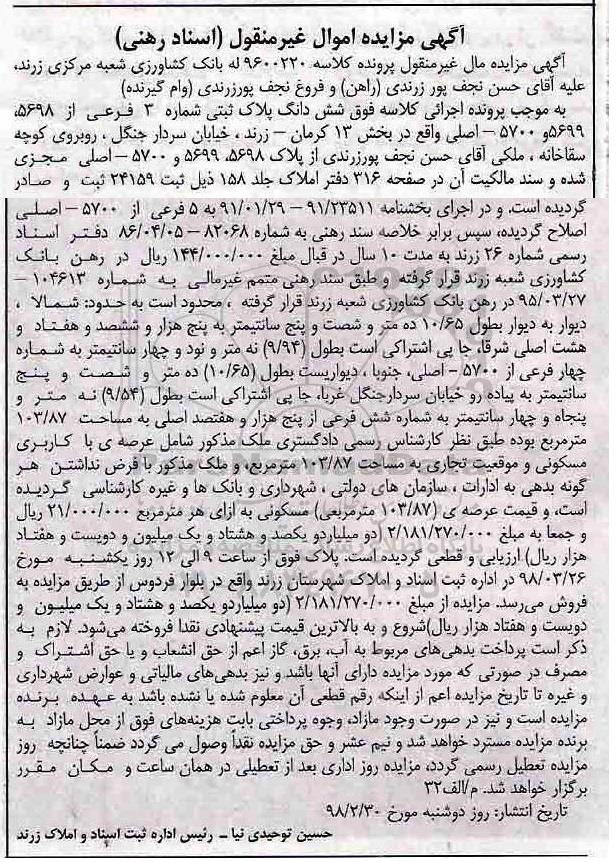 آگهی مزایده اموال غیرمنقول (اسناد رهنی)
آگهی مزایده مال غیرمنقول پرونده کلاسه ۹۶۰۰۲۲۰ له بانک کشاورزی شعبه مرکزی زرند،
علیه آقای حسن نجف پور زرندی (راهن) و فروغ نجف پورزرندی (وام گیرنده)
به موجب پرونده اجرائی کلاسه فوق شش دانگ پلاک ثبتی شماره ۳ فرعی از ۵۶۹۸،
۵۶۹۹و ۵۷۰۰ – اصلی واقع در بخش ۱۳ کرمان – زرند ، خیابان سردار جنگل ، روبروی کوچه
سقاخانه ، ملکی آقای حسن نجف پورزرندی از پلاک ۵۶۹۸، ۵۶۹۹ و ۵۷۰۰ – اصلی مجزی
شده و سند مالکیت آن در صفحه ۳۱۶ دفتر املاک جلد ۱۵۸ ذیل ثبت ۲۴۱۵۹ ثبت و صادر
گردیده است. و در اجرای بخشنامه ۹۱/۲۳۵۱۱ – ۹۱/۰۱/۲۹ به ۵ فرعی از ۵۷۰۰ – اصلی
اصلاح گردیده، سپس برابر خلاصه سند رهنی به شماره ۸۲۰۶۸ – ۸۶/۰۴/۰۵ دفتر اسناد
رسمی شماره ۲۶ زرند به مدت ۱۰ سال در قبال مبلغ ۱۴۴/۰۰۰/۰۰۰ ریال در رهن بانک
کشاورزی شعبه زرند قرار گرفته و طبق سند رهنی متمم غیرمالی به شماره ۱۰۴۶۱۳ –
۹۵/۰۳/۲۷ در رهن بانک کشاورزی شعبه زرند قرار گرفته ، محدود است به حدود: شمالا ،
دیوار به دیوار بطول ۱۰/۶۵ ده متر و شصت و پنج سانتیمتر به پنج هزار و ششصد و هفتاد و
هشت اصلی شرقا، جا پی اشتراکی است بطول (۹/۹۴) نه متر و نود و چهار سانتیمتر به شماره
چهار فرعی از ۵۷۰۰ – اصلی، جنوبا ، دیواریست بطول (۱۰/۶۵) ده متر و شصت و پنج
سانتیمتر به پیاده رو خیابان سردارجنگل غربا، جا پی اشتراکی است بطول (۹/۵۴) نه متر و
پنجاه و چهار سانتیمتر به شماره شش فرعی از پنج هزار و هفتصد اصلی به مساحت ۱۰۳/۸۷
مترمربع بوده طبق نظر کارشناس رسمی دادگستری ملک مذکور شامل عرصه ی با کاربری
مسکونی و موقعیت تجاری به مساحت ۱۰۳/۸۷ مترمربع، و ملک مذکور با فرض نداشتن هر
گونه بدهی به ادارات ، سازمان های دولتی ، شهرداری و بانک ها و غیره کارشناسی گردیده
است، و قیمت عرصه ی (۱۰۳/۸۷ مترمربعی) مسکونی به ازای هر مترمربع ۲۱/۰۰۰/۰۰۰ ریال
و جمعا به مبلغ ۲/۱۸۱/۲۷۰/۰۰۰ (دو میلیاردو یکصد و هشتاد و یک میلیون و دویست و هفتاد
هزار ریال) ارزیابی و قطعی گردیده است. پلاک فوق از ساعت ۹ الی ۱۲ روز یکشنبه مورخ
۹۸/۰۳/۲۶ در اداره ثبت اسناد و املاک شهرستان زرند واقع در بلوار فردوس از طریق مزایده به
فروش می‌رسد. مزایده از مبلغ ۲/۱۸۱/۲۷۰/۰۰۰ (دو میلیاردو یکصد و هشتاد و یک میلیون و
دویست و هفتاد هزار ریال)شروع و به بالاترین قیمت پیشنهادی نقدا فروخته می‌شود. لازم به
ذکر است پرداخت بدهی‌های مربوط به آب، برق، گاز اعم از حق انشعاب و یا حق اشتراک و
مصرف در صورتی که مورد مزایده دارای آنها باشد و نیز بدهی‌های مالیاتی و عوارض شهرداری
و غیره تا تاریخ مزایده اعم از اینکه رقم قطعی آن معلوم شده یا نشده باشد به عهده برنده
مزایده است و نیز در صورت وجود مازاد، وجوه پرداختی بابت هزینه‌های فوق از محل مازاد به
برنده مزایده مسترد خواهد شد و نیم عشر و حق مزایده نقداً وصول می گردد ضمناً چنانچه روز
مزایده تعطیل رسمی گردد، مزایده روز اداری بعد از تعطیلی در همان ساعت و مکان مقرر
برگزار خواهد شد. م/الف۳۲
تاریخ انتشار: روز دوشنبه مورخ ۹۸/۲/۳۰
حسین توحیدی نیا – رئیس اداره ثبت اسناد و املاک زرند